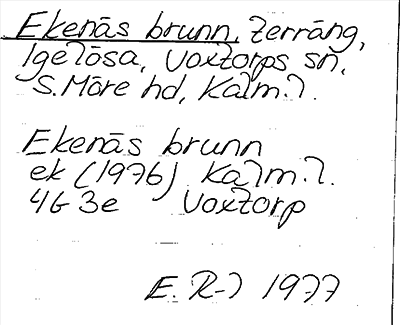 Ekenäs brunn, terräng,
Igelösa, Voxtorps sn,
S. Möre hd, Kalm. l.
Ekenäs brunn
ek (1976) Kalm. l.
4G 3e Voxtorp
E. R-l 1977